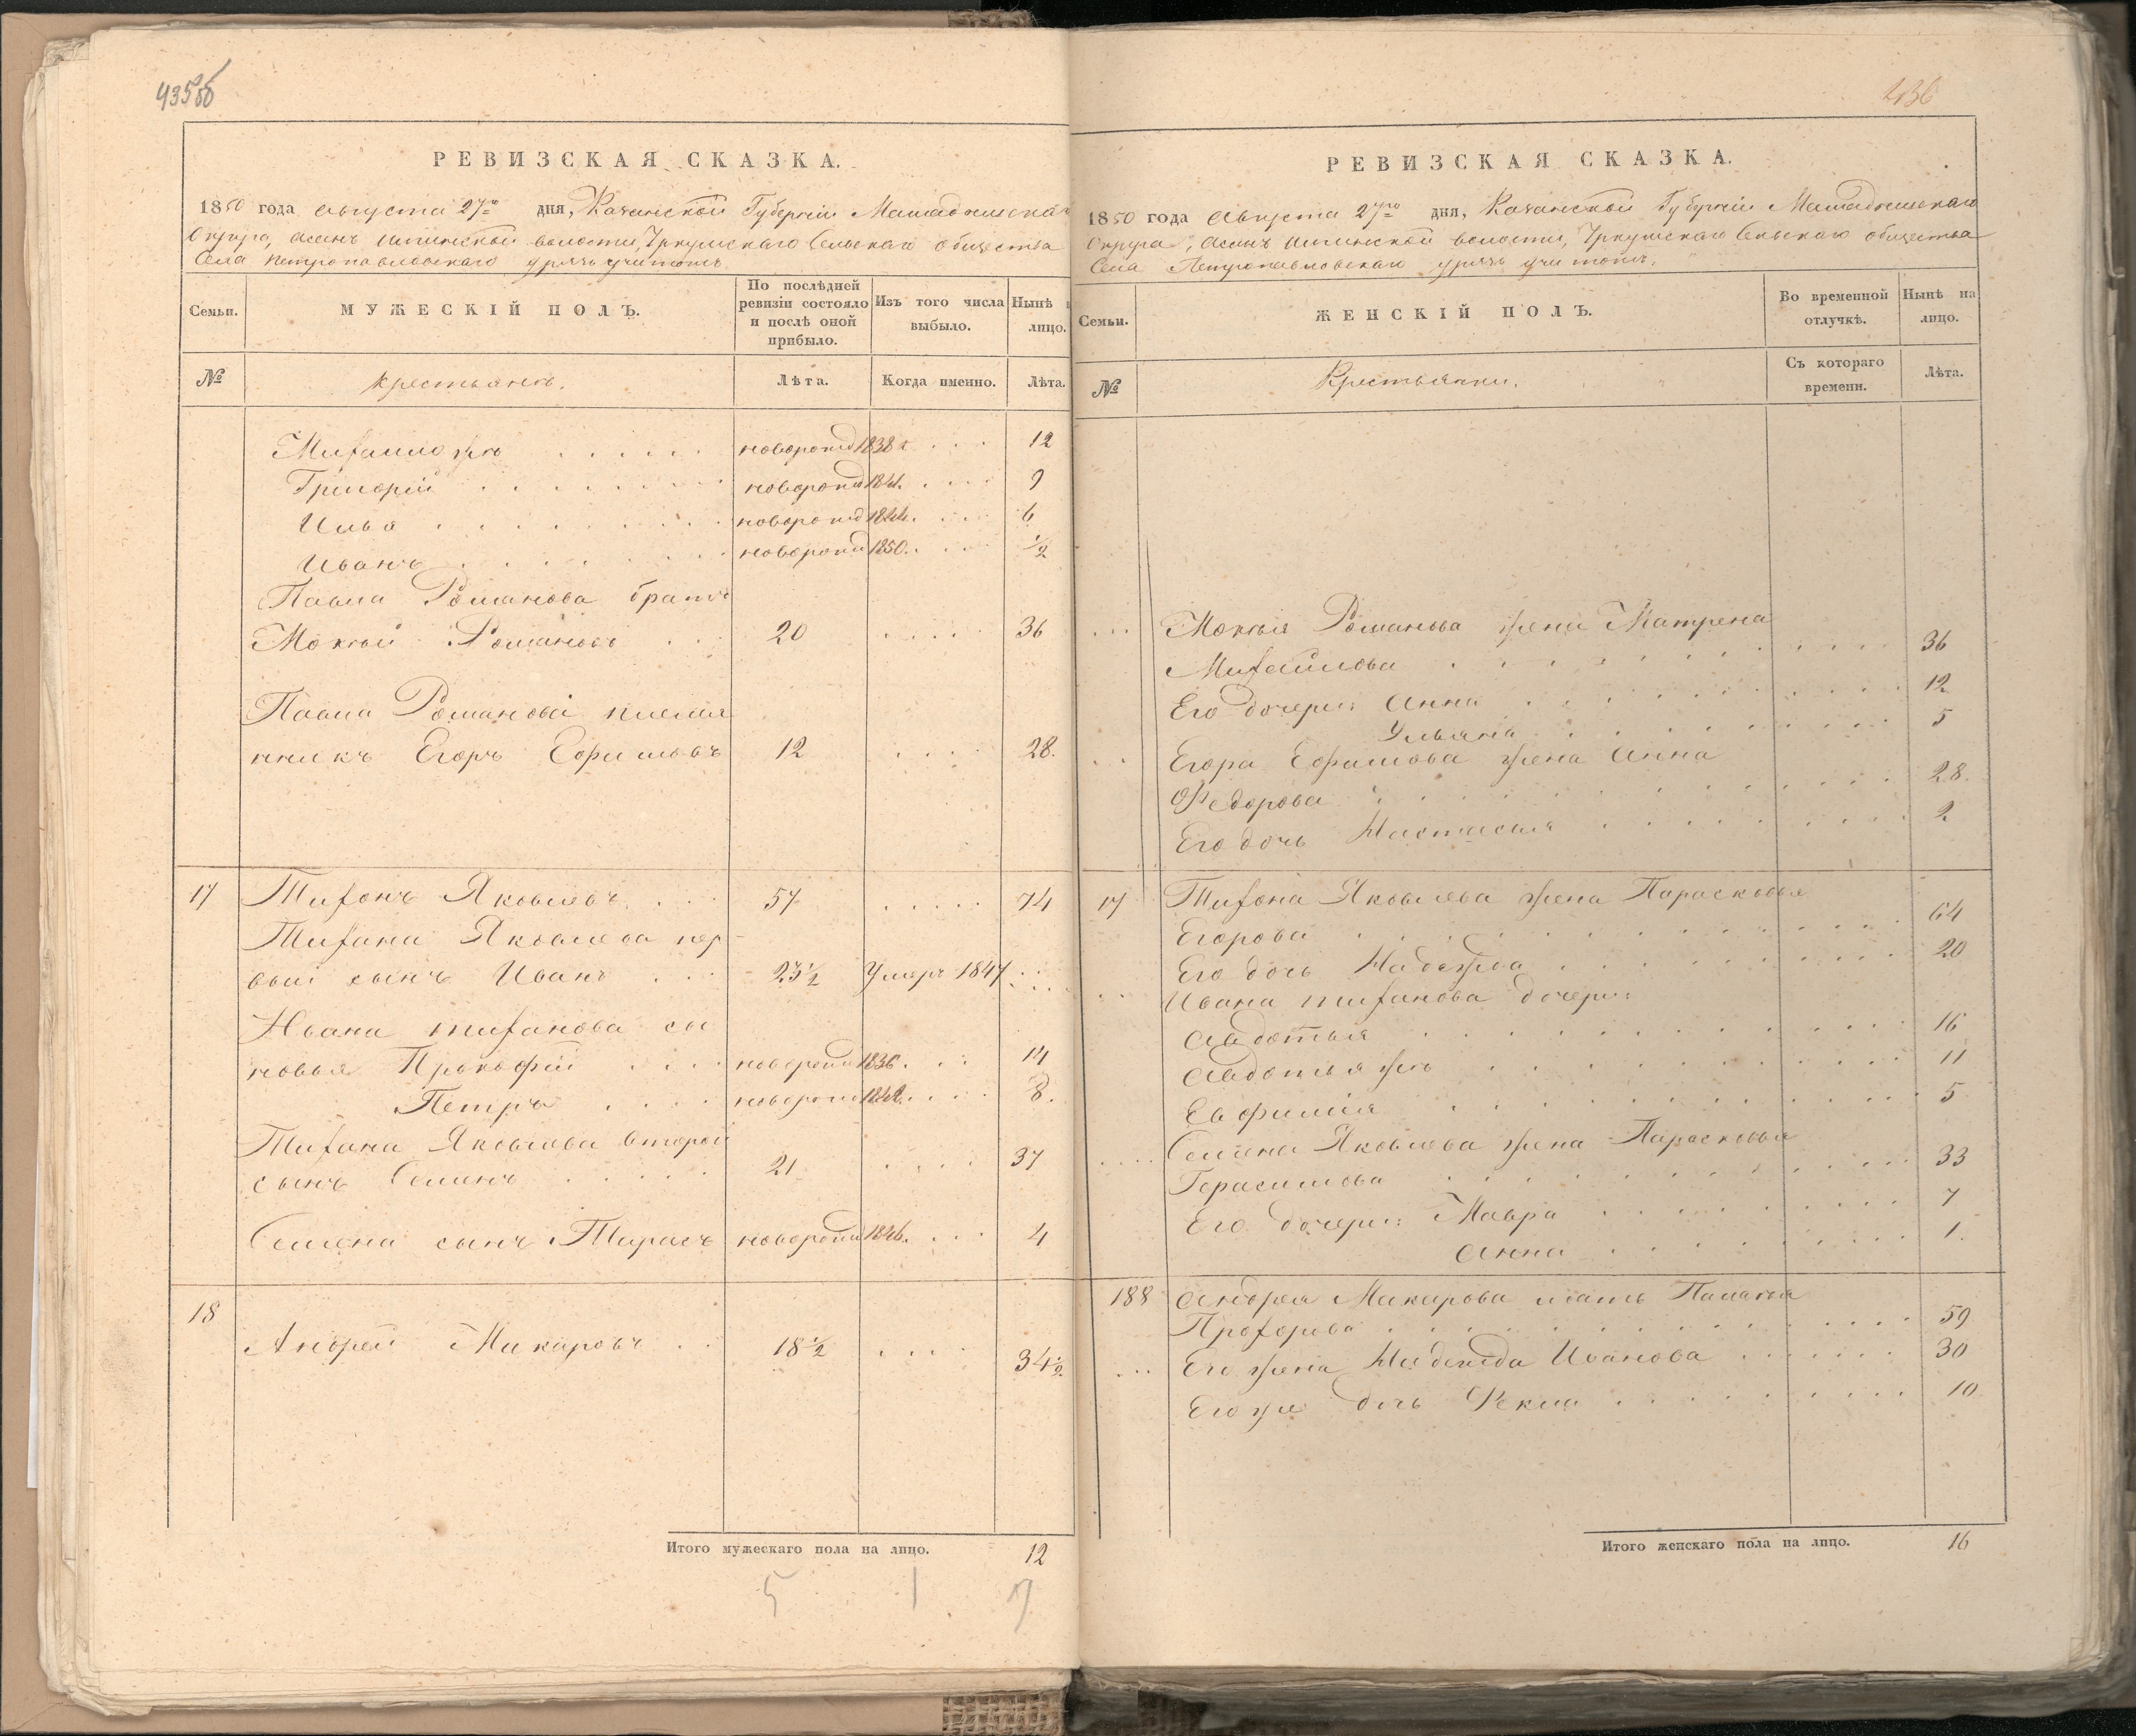 435об
РЕВИЗСКАЯ СКАЗКА.
1850 года августа 27го дня, Казанской Губернiи Мамадышскаго
Округа, волости, Сельскаго общества
Села Петропавловскаго
Семьи.
МУЖЕСКІЙ ПОЛЪ.
По послѣдней ревизіи состояло и послѣ оной прибыло.
Изъ того числа выбыло.
Нынѣ лицо.
№
крестьянъ.
Лѣта.
Когда именно.
Лѣта.
Михаило 1838 12
Григорiй 1841. 9
Илья 1844. 6
Иванъ 1850. 1/2
Павла Романова братъ
Мокѣй Романовъ 20 36
Павла Романова племя
нникъ Егоръ Ефимовъ 12 28.
17 Тихонъ Яковлевъ 57 74
Тихана Яковлева пер
вый сынъ Иванъ 23 1/2 Умеръ 1847
Ивана тиханова сы
новья Прокофiй 1836. 14
Петръ 1842. 8.
Тихана Яковлева второй
сынъ Семенъ 21 37
Семена сынъ Тарасъ 1846. 4
18
Андрей Макаровъ 18 1/2 34 1/2
Итого мужескаго пола на лицо. 12
5 1 7
436
РЕВИЗСКАЯ СКАЗКА.
1850 года августа 27го дня, Казанской Губернiи Мамадышскаго
Округа, волости, Сельскаго общества
Села Петропавловскаго
Семьи.
ЖЕНСКІЙ ПОЛЪ.
Во временной отлучкѣ.
Нынѣ на лицо.
№
Крестьянки.
Съ котораго времени.
Лѣта.
Мокѣя Романова жена Матрена
Михайлова 36
Его дочери: Анна 12
Ульяна 5
Егора Ефимова жена Анна
Федорова 28.
Его дочь Настасья 2
17 Тихона Яковлева жена Парасковья
Егорова 64
Его дочь Надежда 20
Ивана тиханова дочери:
Авдотья 16
Авдотья жъ 11
Евфимiя 5
Семена Яковлева жена Парасковья
Герасимова 33
Его дочери: Мавра 7
Анна 1.
188 Андрея Макарова мать Палагея
Прохорова 59
Его жена Надежда Иванова 30
Его же дочь Фекла 10
Итого женскаго пола на лицо. 16